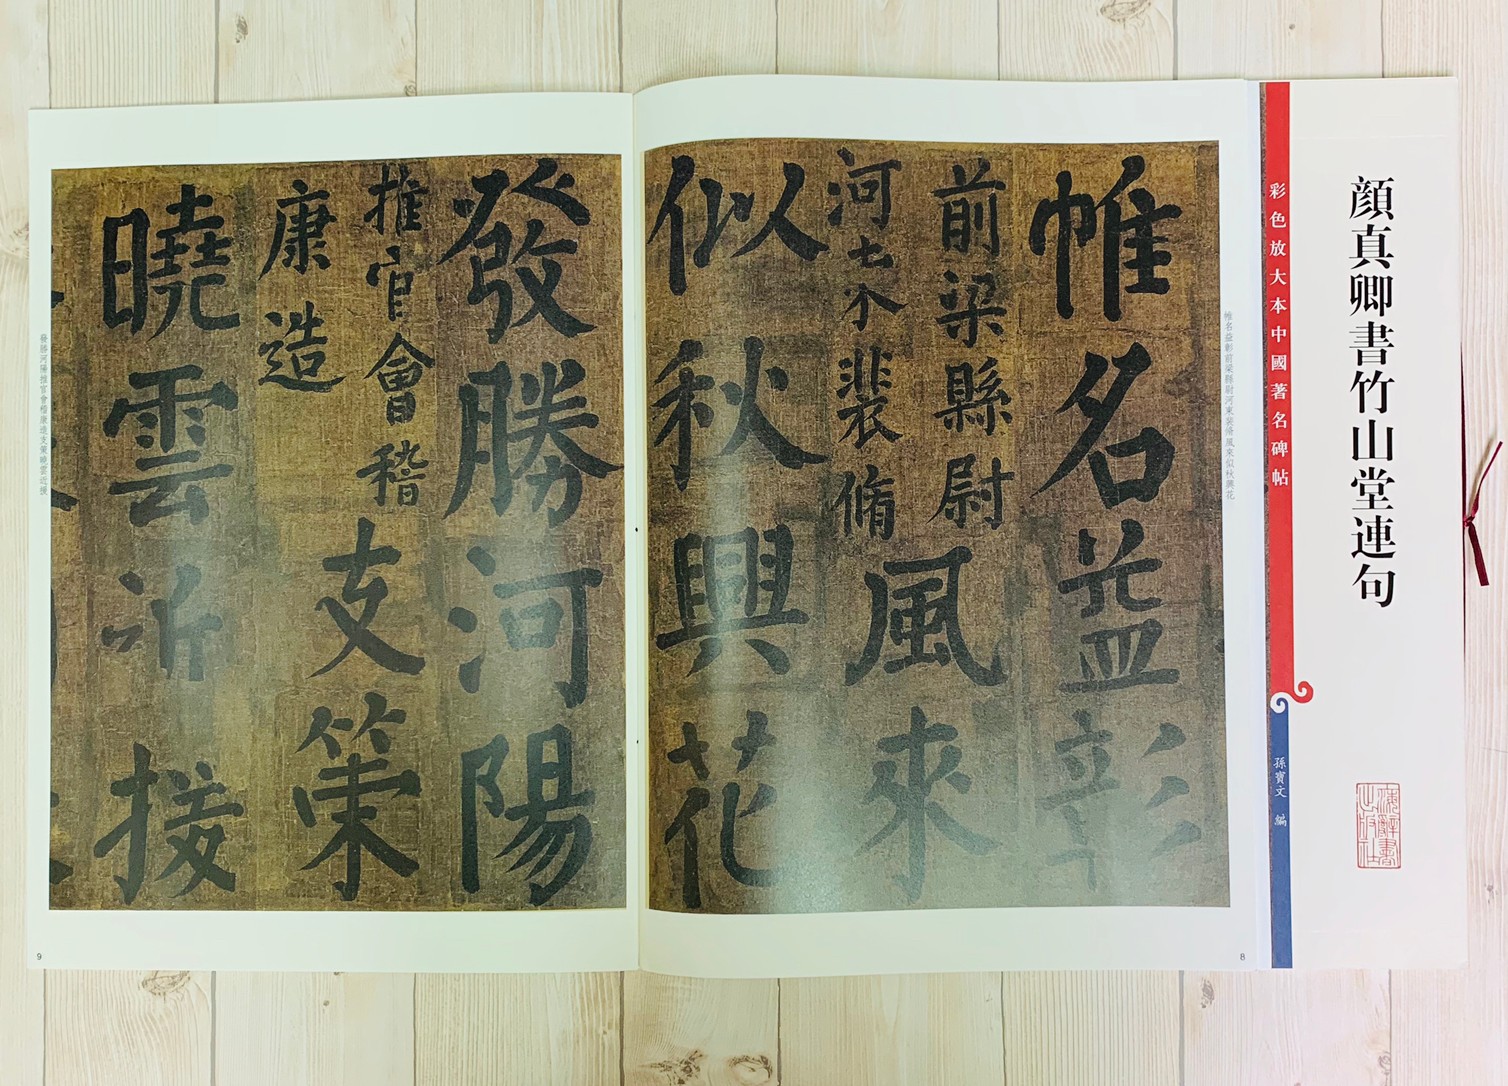 顏真卿書竹山堂連句
彩色放大本中國著名碑帖
孫寶文 編
帷名益彰前梁縣尉河東裴脩風來似秋興花
帷名益彰
前梁縣尉
河東裴脩
風來
似秋興花
8
發勝河陽
推官會稽
康造
支策
曉雲近接
發勝河陽推官會稽康造支策曉雲近接
9